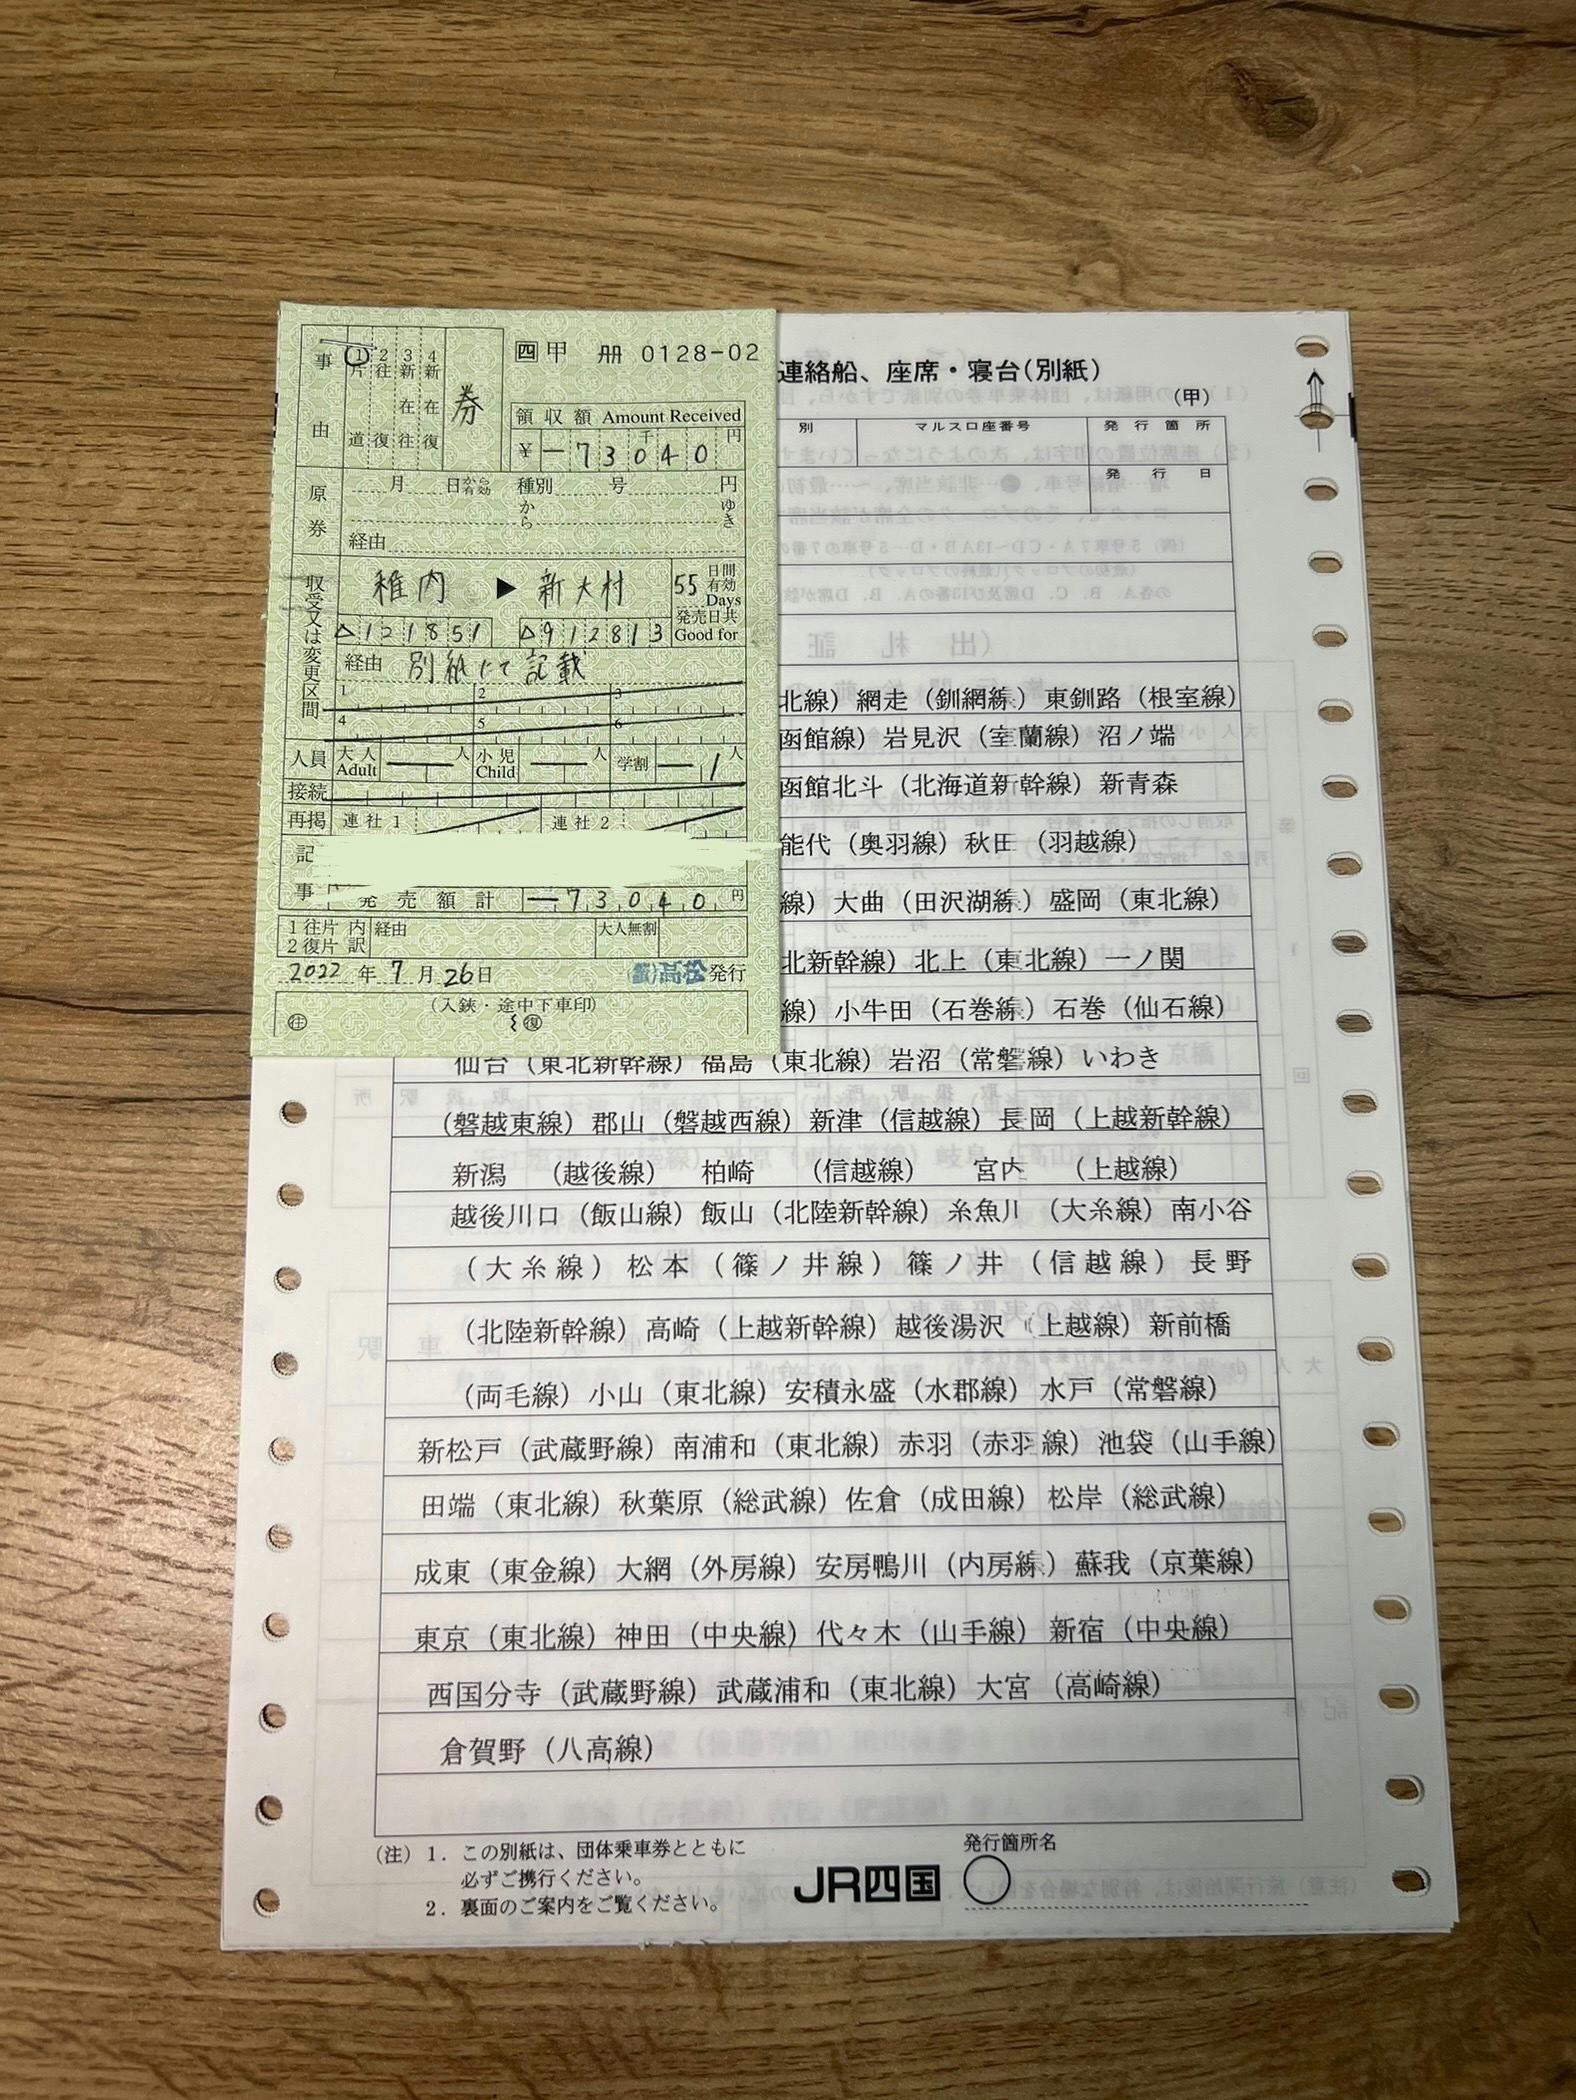 事由
1片道
2往復
3新在往
4新在復
券
四 甲 冊 0128-02
領収額 Amount Received
¥ -73040 千 円
原券
月 日から有効 種別 号 円
から ゆき
経由
収受又は変更区間
稚内 ▶ 新大村
55 日間有効 Days
発売日共 Good for
△121851 △912813
経由 別紙にて記載
1 2 3
4 5 6
人員 大人 Adult 人 小児 Child 人 学割 1 人
接続
再掲 連社1 連社2
記事
発売額計 -73040円
1往片 2復片 内訳 経由 大人無割
2022年7月26日 発行
(入鋏・途中下車印)
往 復
連絡船、座席・寝台(別紙)
(甲)
別 マルス口座番号 発行箇所
発行日
北線)網走(釧網線)東釧路(根室線)
函館線)岩見沢(室蘭線)沼ノ端
函館北斗(北海道新幹線)新青森
能代(奥羽線)秋田(羽越線)
線)大曲(田沢湖線)盛岡(東北線)
北新幹線)北上(東北線)一ノ関
線)小牛田(石巻線)石巻(仙石線)
仙台(東北新幹線)福島(東北線)岩沼(常磐線)いわき
(磐越東線)郡山(磐越西線)新津(信越線)長岡(上越新幹線)
新潟 (越後線) 柏崎 (信越線) 宮内 (上越線)
越後川口(飯山線)飯山(北陸新幹線)糸魚川(大糸線)南小谷
(大糸線)松本(篠ノ井線)篠ノ井(信越線)長野
(北陸新幹線)高崎(上越新幹線)越後湯沢(上越線)新前橋
(両毛線)小山(東北線)安積永盛(水郡線)水戸(常磐線)
新松戸(武蔵野線)南浦和(東北線)赤羽(赤羽線)池袋(山手線)
田端(東北線)秋葉原(総武線)佐倉(成田線)松岸(総武線)
成東(東金線)大網(外房線)安房鴨川(内房線)蘇我(京葉線)
東京(東北線)神田(中央線)代々木(山手線)新宿(中央線)
西国分寺(武蔵野線)武蔵浦和(東北線)大宮(高崎線)
倉賀野(八高線)
(注)1. この別紙は、団体乗車券とともに
必ずご携行ください。
2. 裏面のご案内をご覧ください。
JR四国
発行箇所名